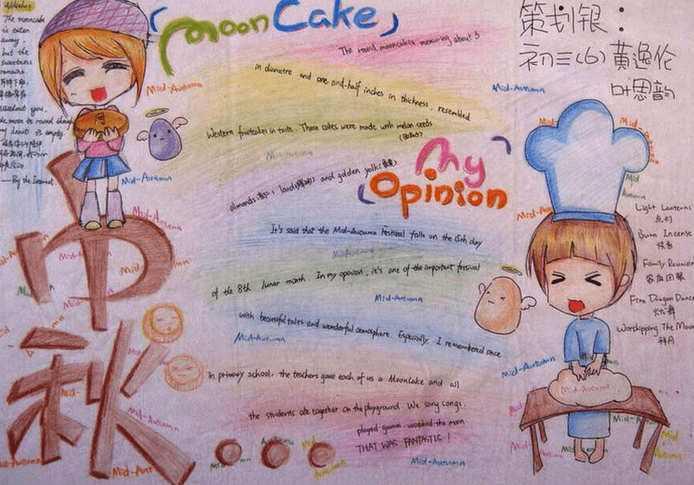 Moon Cake
The round mooncakes measuring about 3
in diametre and one and half inches in thickness, resembled
Western fruitcakes in taste. These cakes were made with melon seeds
almonds lard and golden yolk
My
Opinion
It's said that the Mid-Autumn Festival falls on the 15th day
of the 8th lunar month. In my opinion, it's one of the important festival
with beautiful tales and wonderful atmosphere. Especially, I remembered once
In primary school, the teachers gave each of us a MoonCake and all
the students ate together on the playground. We sang songs,
played games, watched the moon.
THAT WAS FANTASTIC!
The mooncake
is eaten
away,
but the
sweetness
remains
Without you,
the moon is round though
my heart is empty
—By the Internet
中
秋
策划银：
初三(6) 黄逸伦
叶思韵
Light Lanterns
点灯
Burn Incense
Family Reunion
家庭团聚
Fire Dragon Dance
Worshipping The Moon
拜月
Mid-Autumn
Mid-Autumn
Mid-Autumn
Mid-Autumn
Mid-Autumn
Mid-Autumn
Mid-Autumn
Mid-Autumn
Mid-Autumn
Mid-Autumn
Mid-Autumn
Mid-Autumn